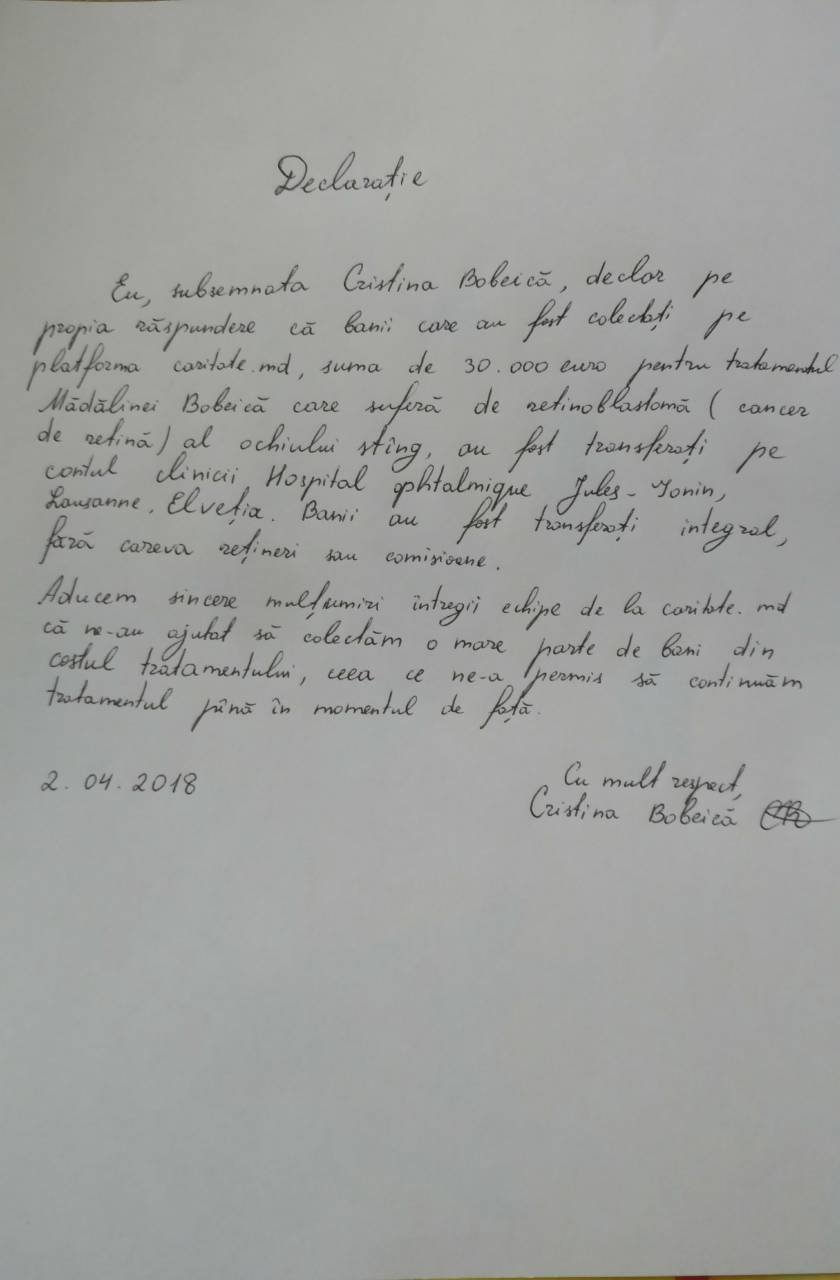 Declarație
Eu, subsemnata Cristina Bobeică, declar pe
propia răspundere că banii care au fost colectați pe
platforma caritate.md, suma de 30.000 euro pentru tratamentul
Mădălinei Bobeică care suferă de retinoblastomă (cancer
de retină) al ochiului stîng, au fost transferați pe
contul clinicii Hospital ophtalmique Jules-Gonin,
Lausanne, Elveția. Banii au fost transferați integral,
fără careva rețineri sau comisioane.
Aducem sincere mulțumiri întregii echipe de la caritate.md
că ne-au ajutat să colectăm o mare parte de bani din
costul tratamentului, ceea ce ne-a permis să continuăm
tratamentul pînă în momentul de față.
2.04.2018
Cu mult respect,
Cristina Bobeică